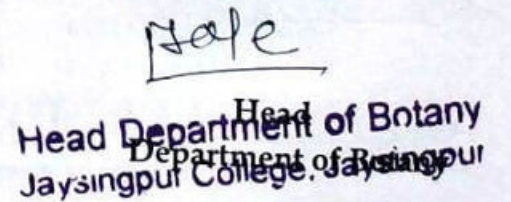 Head
Department of Botany
Head Department of Botany
Jaysingpur College. Jaysingpur